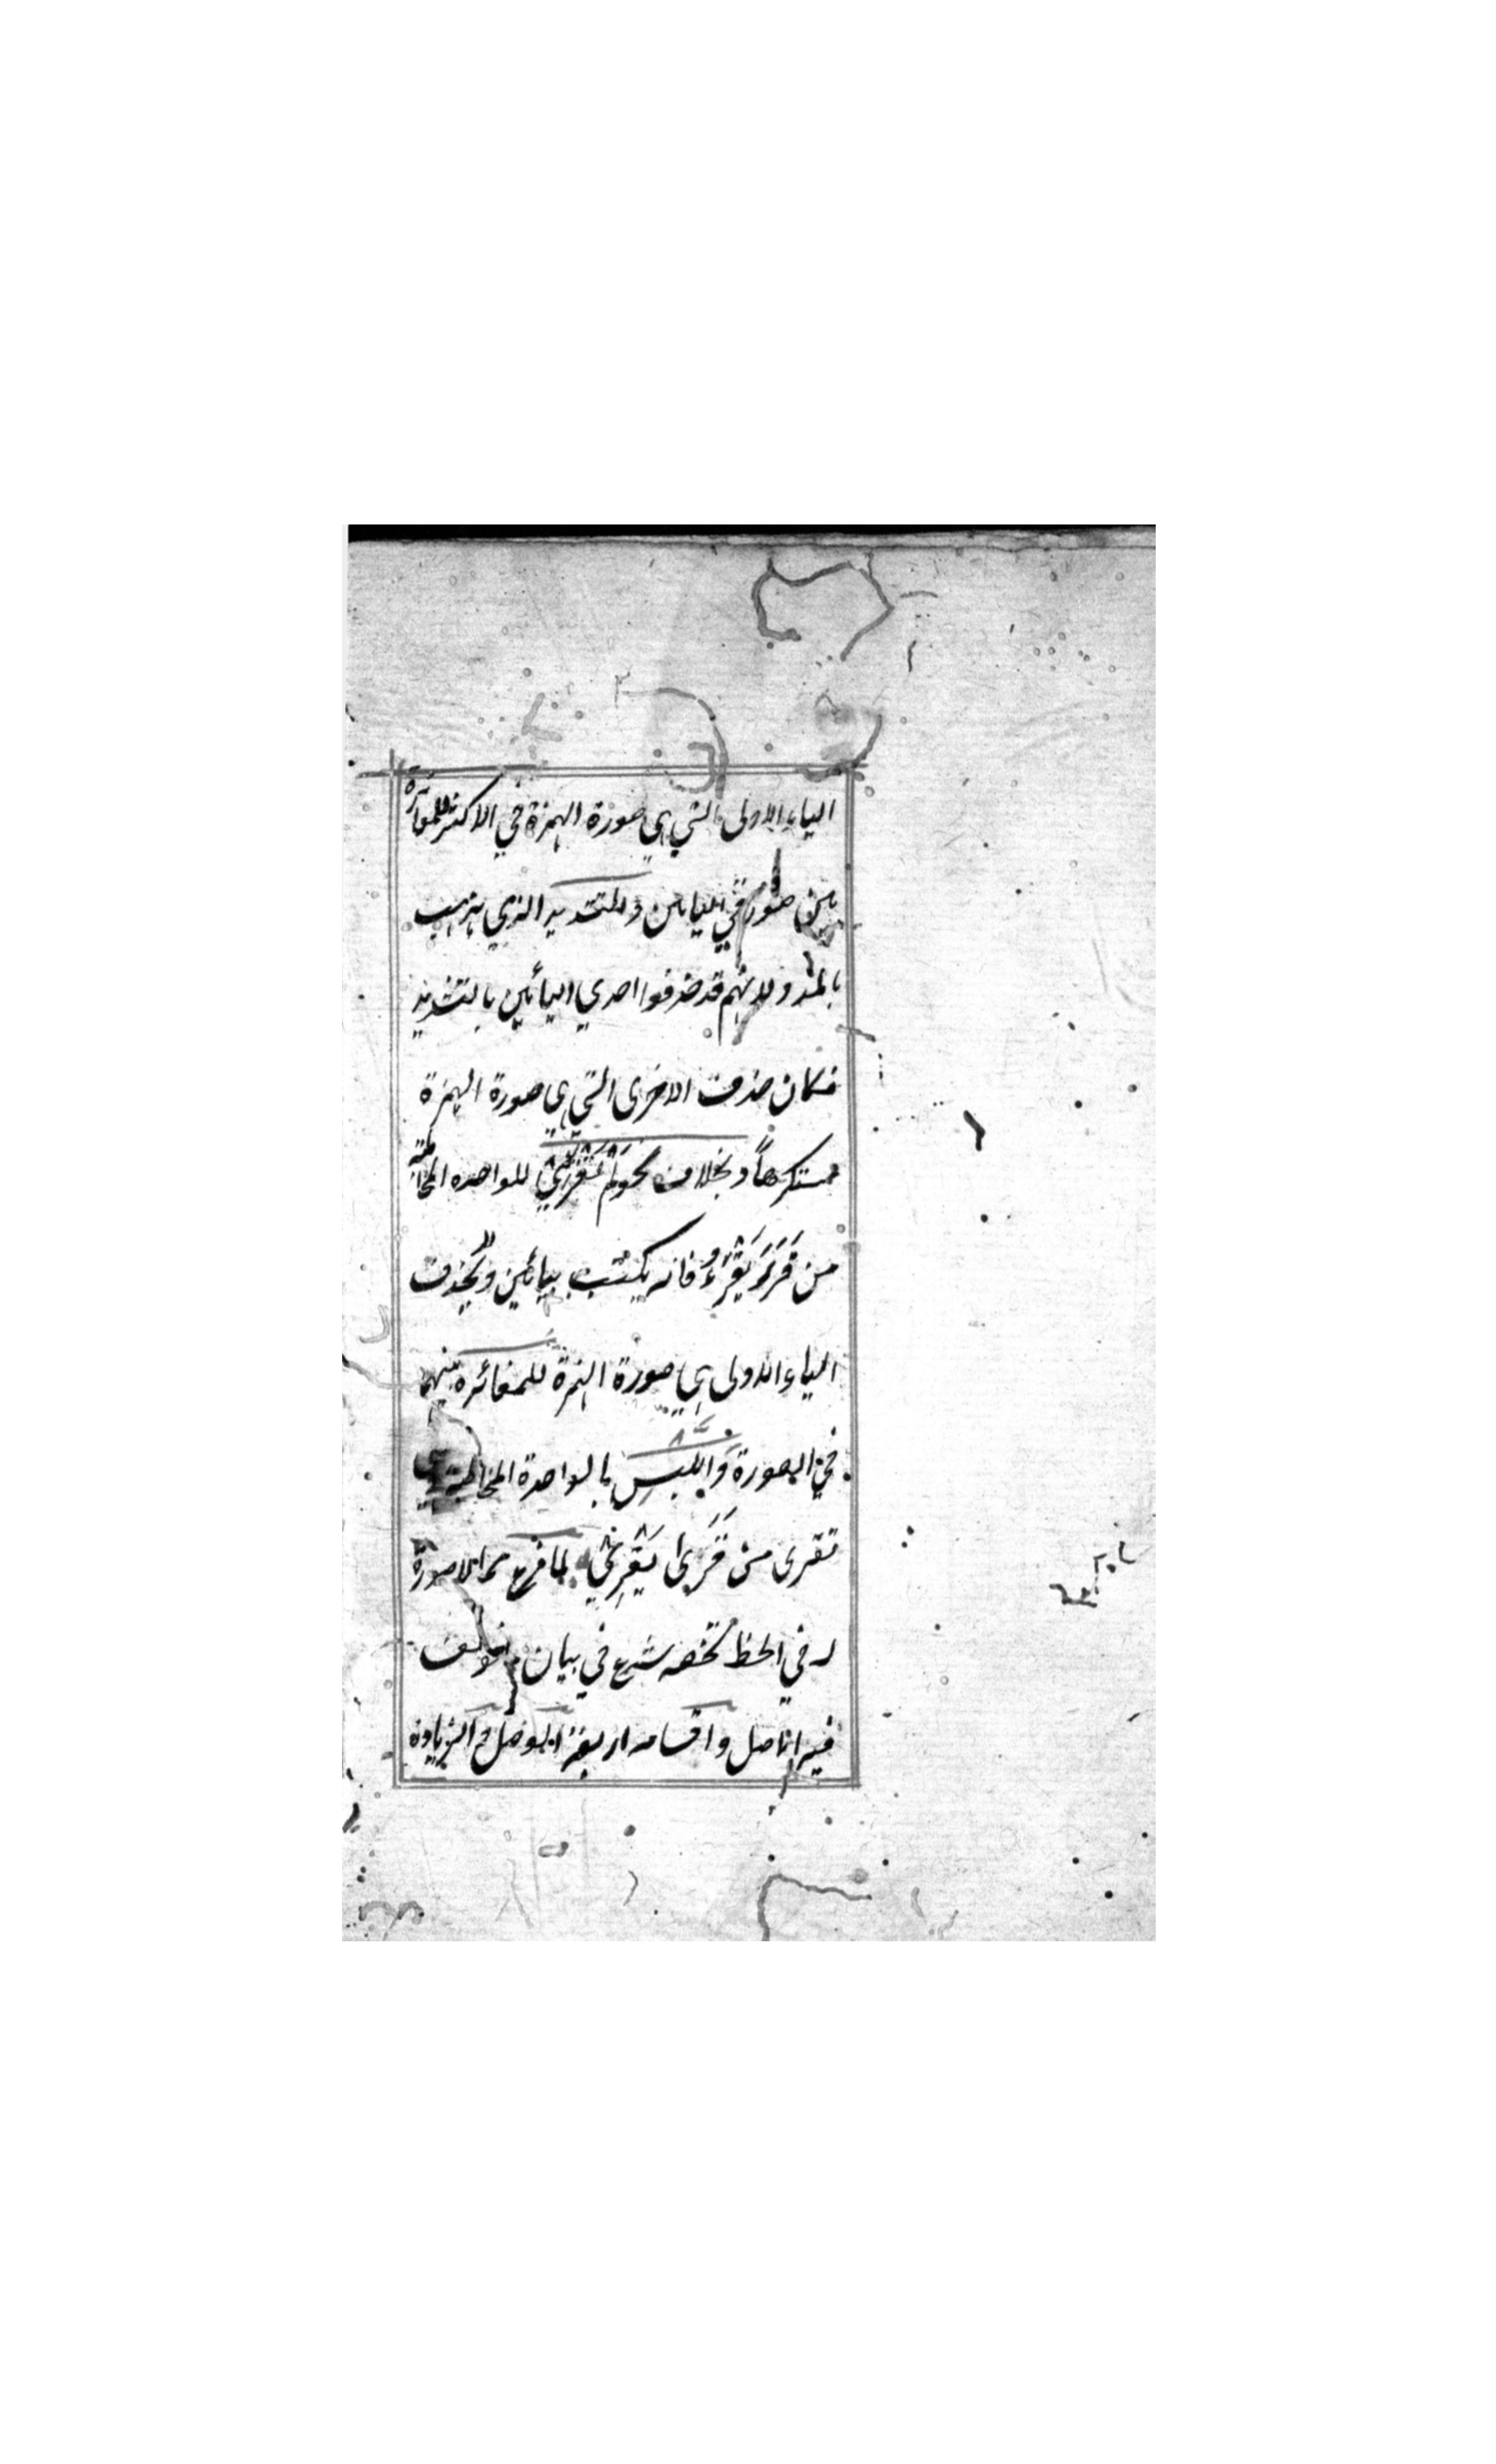 الياء الاولى التي هي صورة الهمزة في الاكثر للمغائرة
بين صورتي اليائين وللتشديد الذي يذهب
بالمد ولانهم قد حذفوا احدي اليائين بالتشديد
فكان حذف الاخرى التي هي صورة الهمزة
مستكرهاً وبخلاف نحو لم تَقْرَئي للواحده المخاطبة
من قَرَءَ يَقْرَءُ فانه يكتب بيائين ولا يحذف
الياء الاولى هي صورة الهمزة للمغائرة بينهما
في الصورة واللبس بالواحدة المخاطبة
تقرى من قَرَى يَقْرِي لما فرغ مما لا صورة
له في الخط تخصه شرع في بيان ما خولف
فيه الاصل واقسامه اربعة الوصل والزيادة